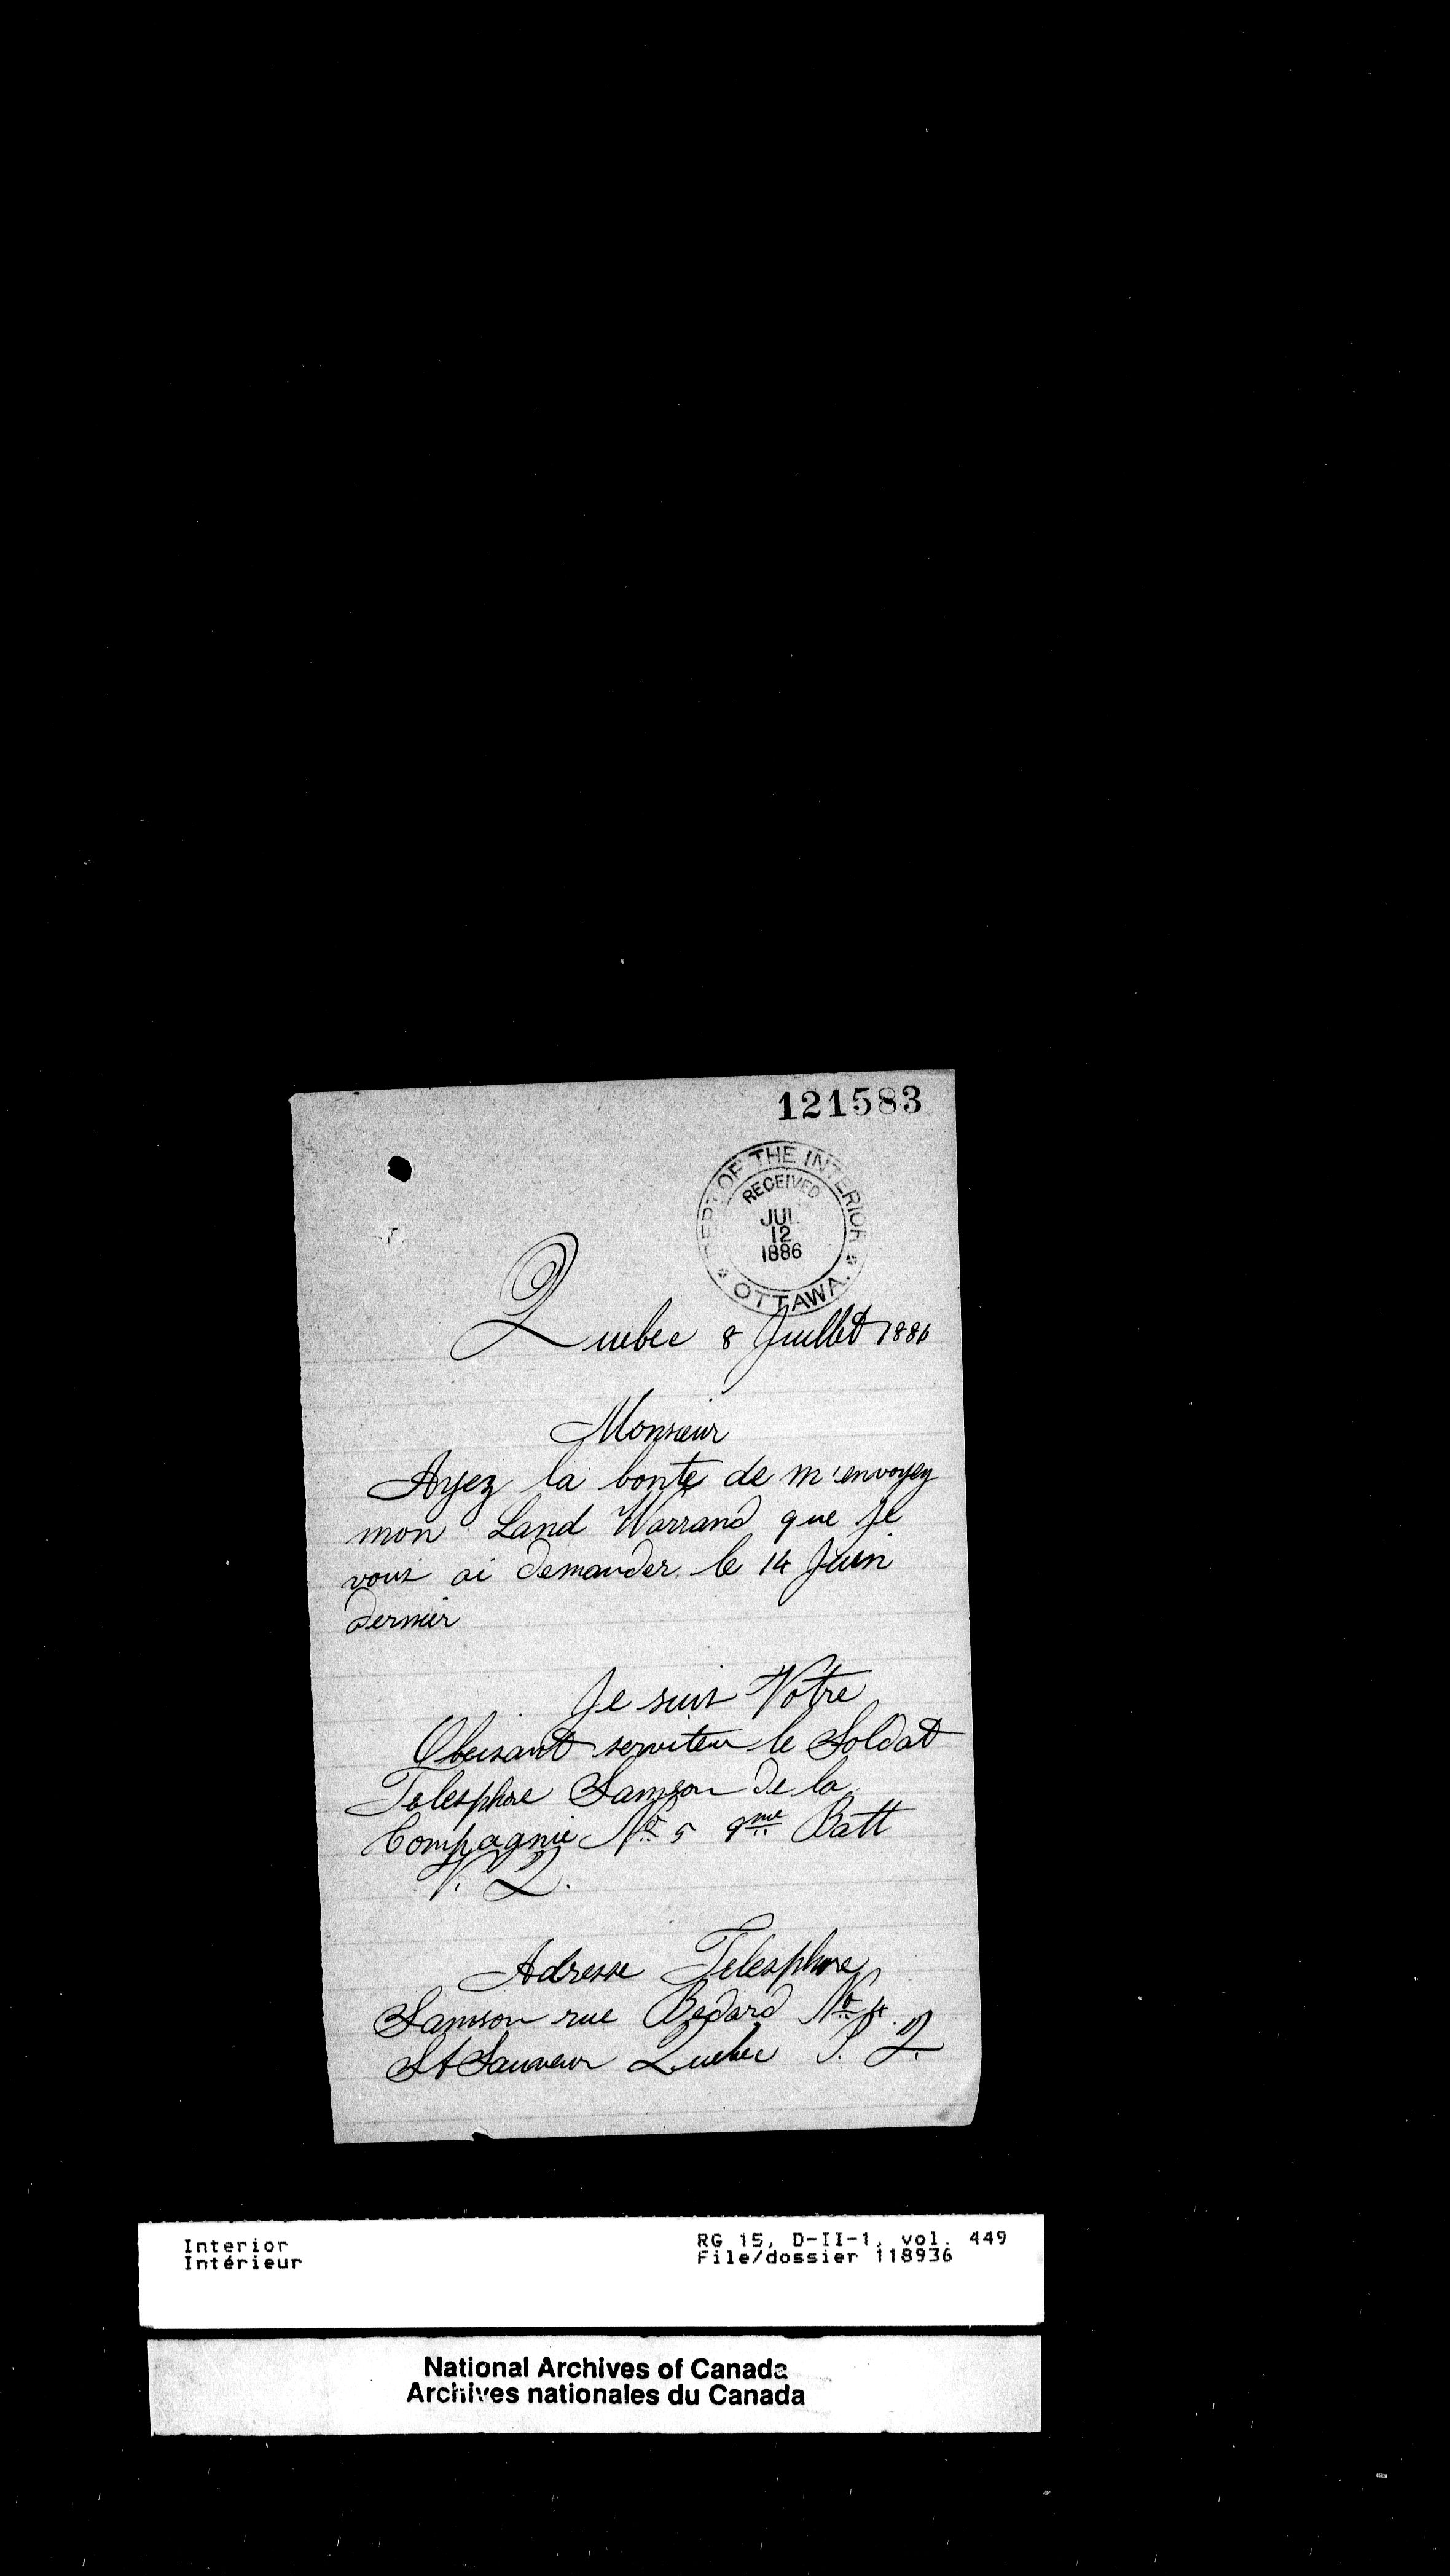 121583
DEPT OF THE INTERIOR
RECEIVED
JUL
12
1886
OTTAWA.
Quebec 8 Juillet 1886
Monsieur
Ayez la bonte de m'envoyey
mon Land Warrand que je
vous ai demander le 14 Juin
dernier
Je suis Votre
Obeisant serviteur le Soldat
Telesphore Samson de la
Compagnie No 5 9me Batt
V. Q.
Adresse Telesphore
Samson rue Bedard No 4
St Sauveur Quebec P. Q.
Interior
Intérieur
RG 15, D-II-1, vol. 449
File/dossier 118936
National Archives of Canada
Archives nationales du Canada